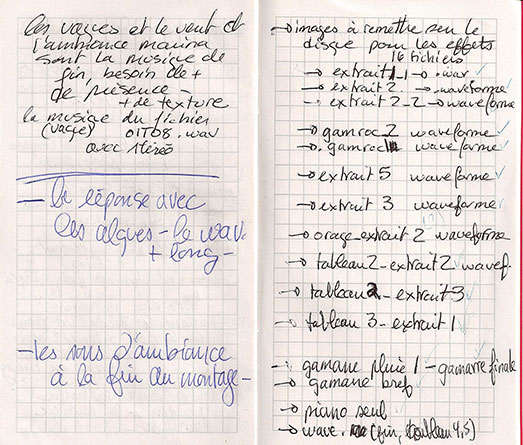 les vagues et le vent et
l'ambiance marina
sont la musique de
fin, besoin de +
de présence -
+ de texture
la musique du fichier
(vague) 01T08.wav
avec stéréo
— la réponse avec
les algues - le wav
+ long -
- les sons d'ambiance
à la fin du montage -
→ images à remettre sur le
disque pour les effets
16 fichiers
→ extrait 1_1 → .wav
→ extrait 2 → waveforme
→ extrait 2_2 → waveforme
→ gamroc_2 waveforme
→ gamroc waveforme
→ extrait 5 waveforme
→ extrait 3 waveforme
→ orage_extrait 2 waveforme
→ tableau 2_extrait 2 wavef.
→ tableau 2_ extrait 3
→ tableau 3 - extrait 1
→ gamane pluie 1 - gamarre finale
→ gamane bref
→ piano seul
→ wave. (fin, tableau 4,5)